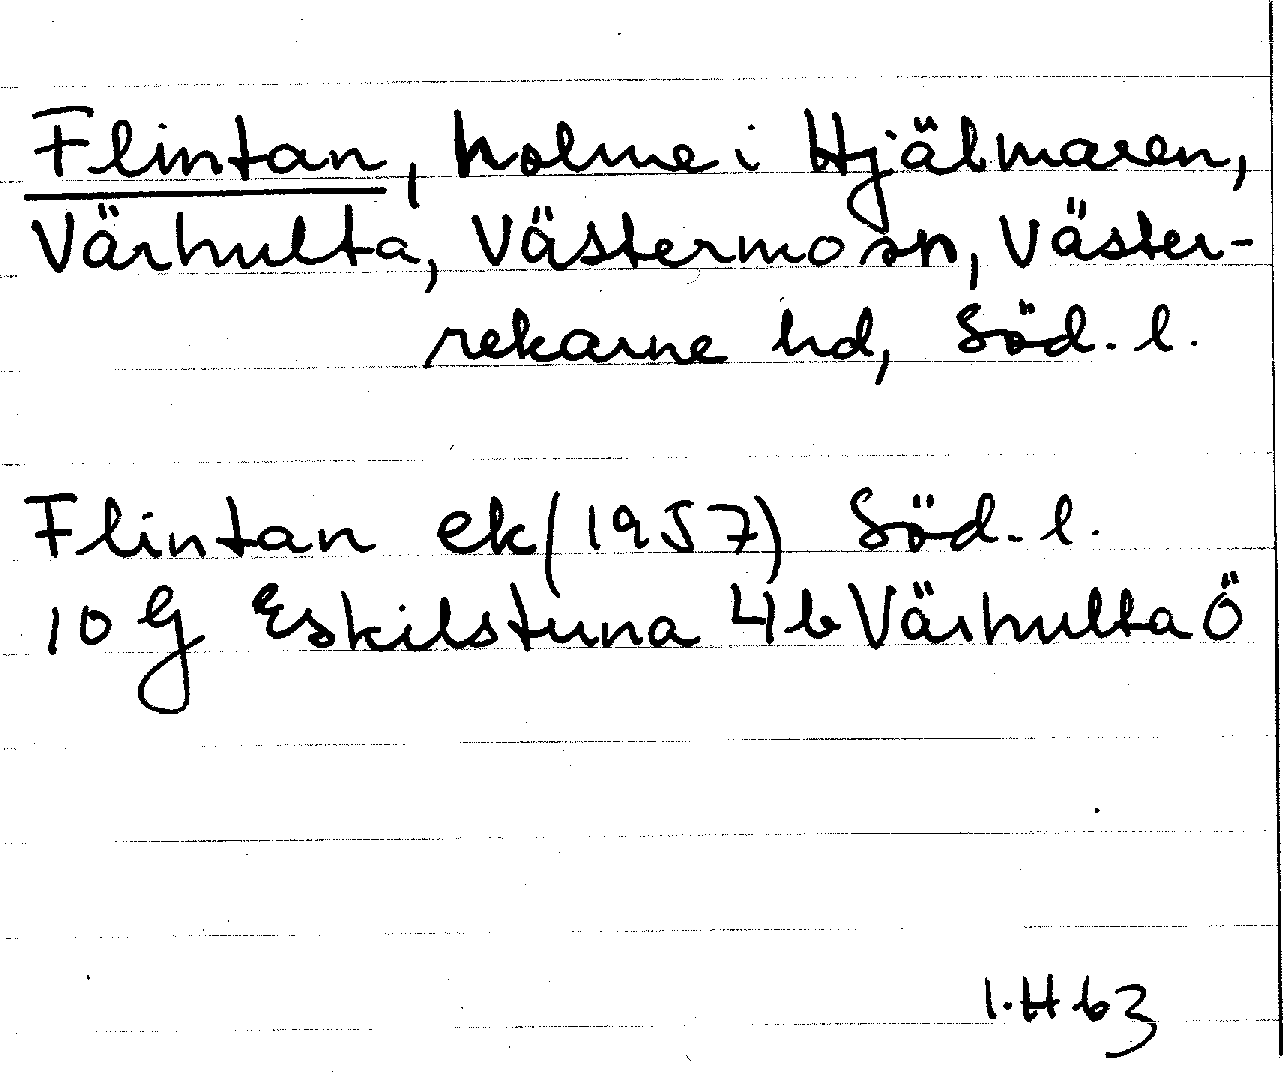 Flintan, holme i Hjälmaren,
Värhulta, Västermo sn, Väster-
rekarne hd, Söd. l.
Flintan ek (1957) Söd. l.
10 G Eskilstuna 4 b Värhulta Ö
I.H 63